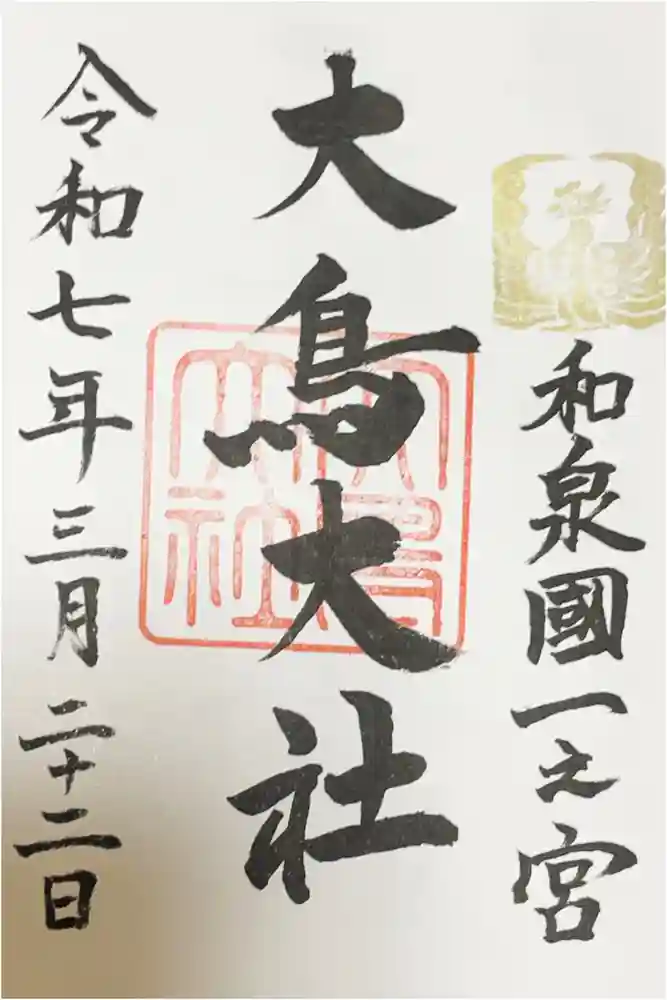 和泉國一之宮
大鳥大社
大鳥大社
令和七年三月二十二日